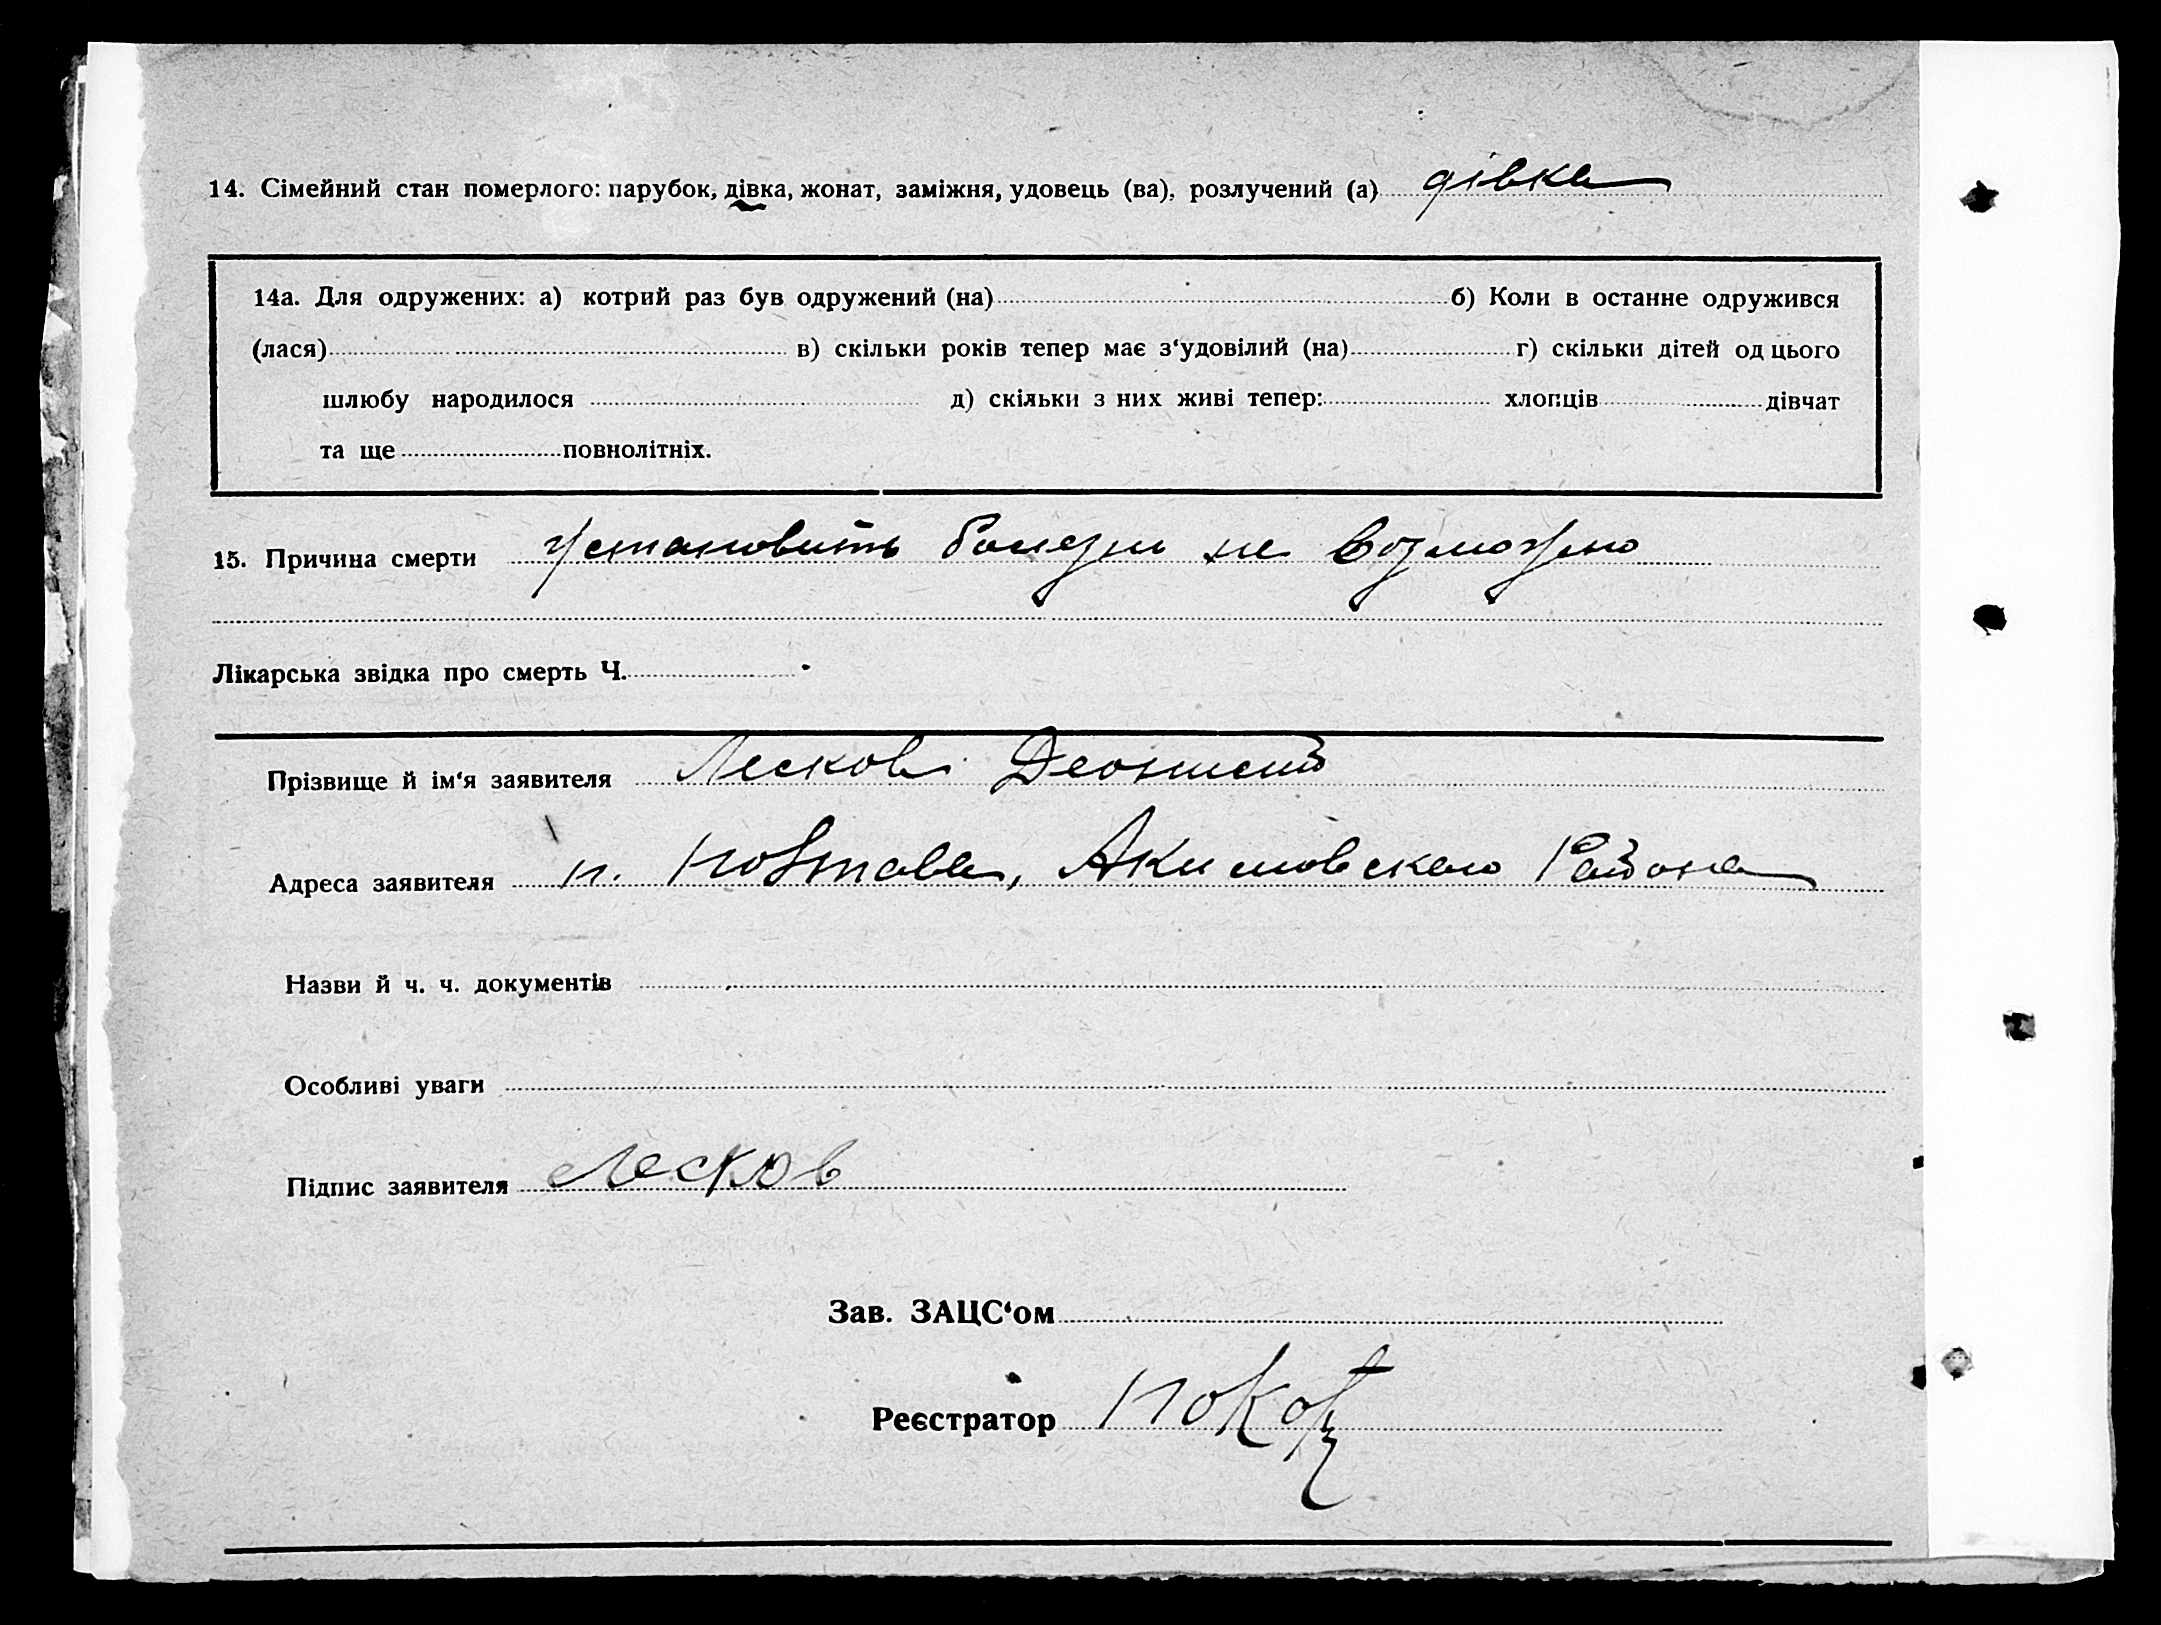 14. Сімейний стан померлого: парубок, дівка, жонат, заміжня, удовець (ва), розлучений (а) дівка
14а. Для одружених: а) котрий раз був одружений (на) б) Коли в останне одружився
(лася) в) скільки років тепер має з‘удовілий (на) г) скільки дітей од цього
шлюбу народилося д) скільки з них живі тепер: хлопців дівчат
та ще повнолітніх.
15. Причина смерти Установить болезни не возможно
Лікарська звідка про смерть Ч.
Прізвище й ім‘я заявителя Лесков Деонисий
Адреса заявителя п. Акимовского Района
Назви й ч. ч. документів
Особливі уваги
Підпис заявителя Лесков
Зав. ЗАЦС‘ом
Реєстратор